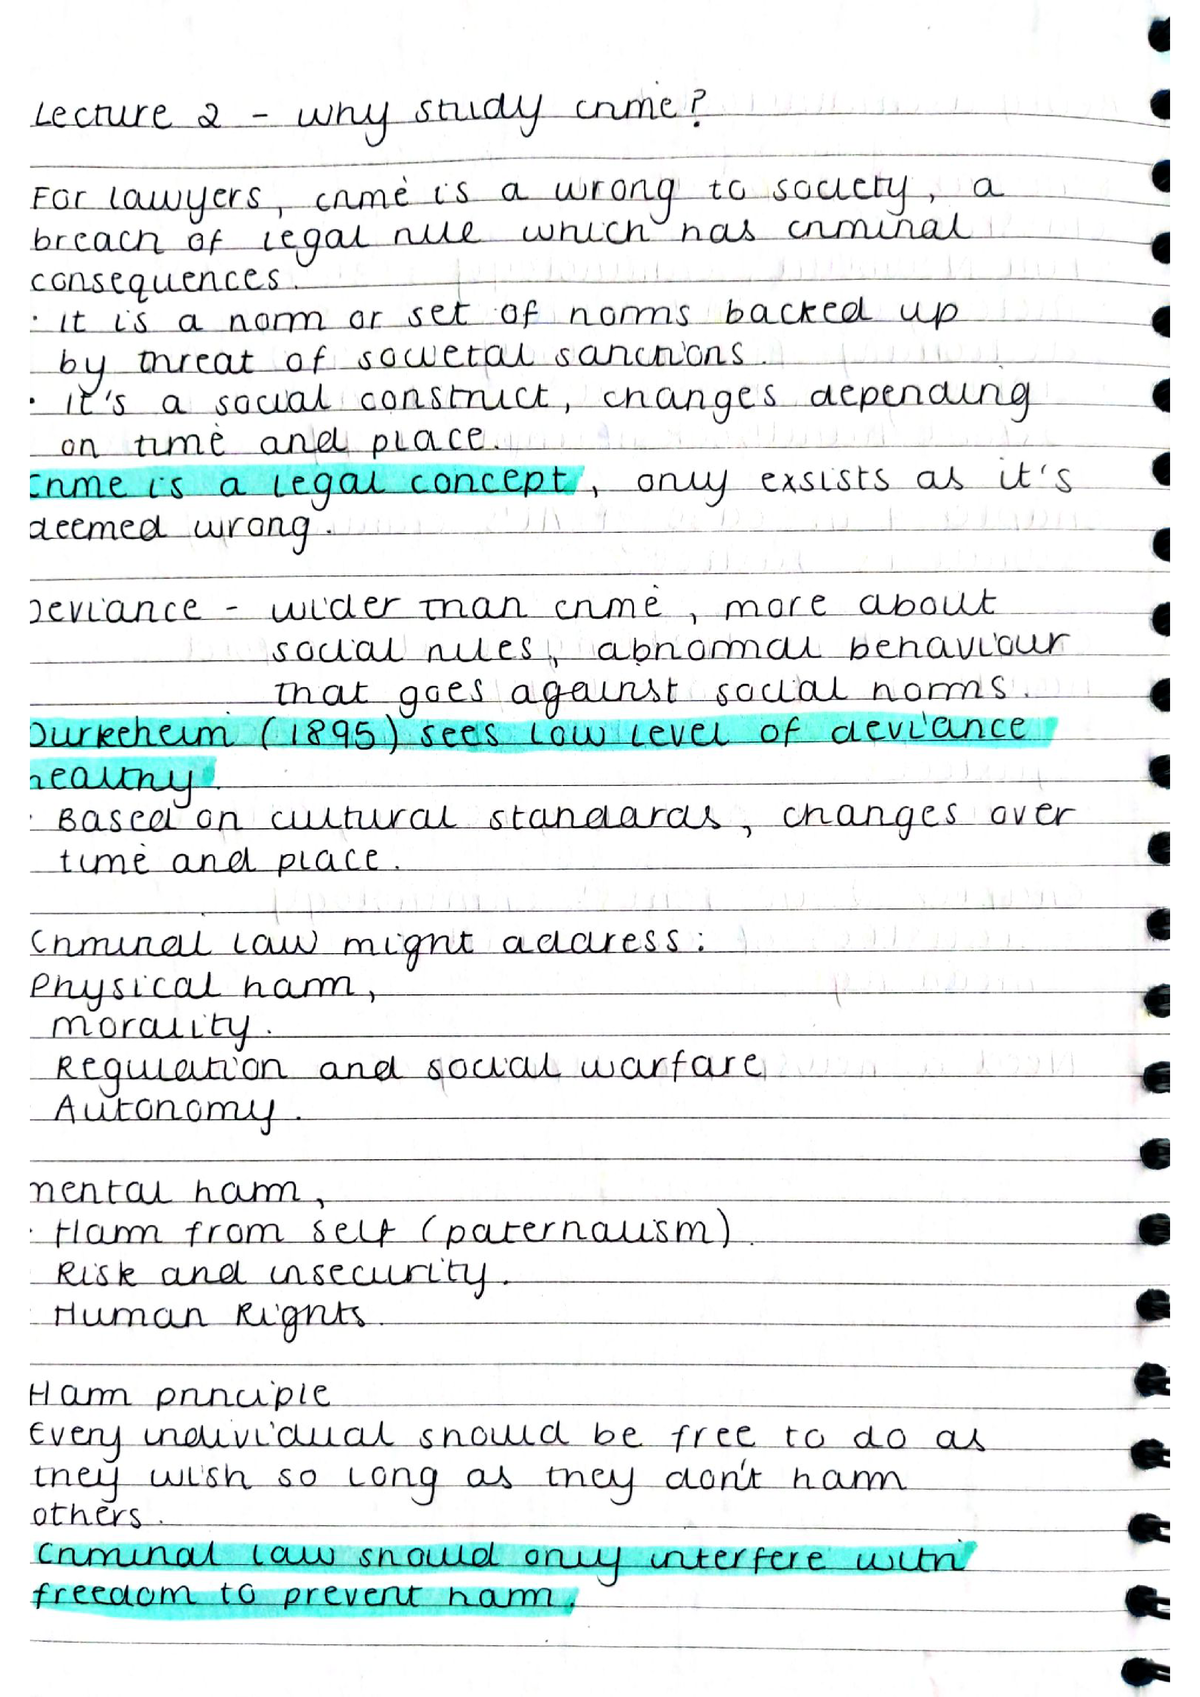 Lecture 2 - why study crime?
For lawyers, crime is a wrong to society, a
breach of legal rule which has criminal
consequences.
· it is a norm or set of norms backed up
by threat of societal sanctions.
· it's a social construct, changes depending
on time and place.
Crime is a legal concept, only exsists as it's
deemed wrong.
Deviance - wider than crime, more about
social rules, abnormal behaviour
that goes against social norms.
Durkeheim (1895) sees low level of deviance
healthy.
· Based on cultural standards, changes over
time and place.
Criminal law might address:
Physical harm,
morality.
Regulation and social warfare
Autonomy.
mental harm,
· Harm from self (paternalism)
Risk and insecurity.
Human Rights.
Harm principle
Every individual should be free to do as
they wish so long as they don't harm
others.
Criminal law should only interfere with
freedom to prevent harm.